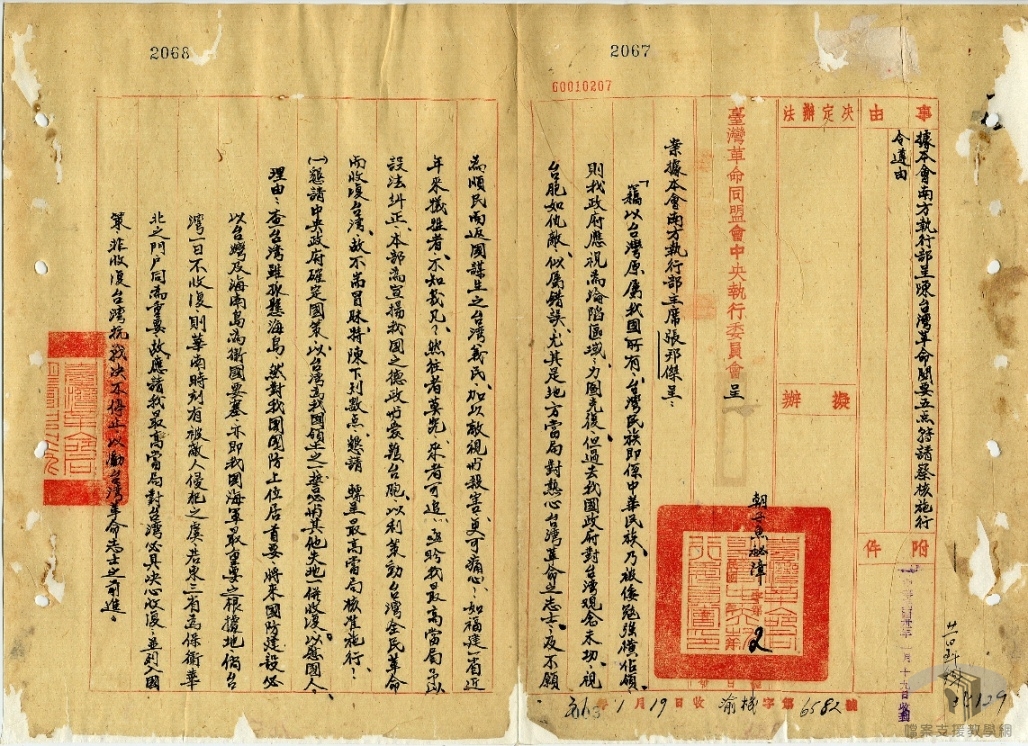 2068
2067
G0010207
事由
據本會南方執行部呈陳台灣革命關要五点特請察核施行
令遵由
決定辦法
擬辦
附件
臺灣革命同盟會中央執行委員會 呈
朝子魚
字第 2
業據本會南方執行部主席張邦傑呈：
「竊以台灣原屬我國所有、台灣民族即係中華民族、乃被倭寇強橫佔領、
則我政府應視為淪陷區域、力圖光復、但過去我國政府對台灣观念未切、視
台胞如仇敵、似屬錯誤、尤其是地方當局對熱心台灣革命之志士、反不願
為順民而返國謀生之台灣義民、加以敵視甚或殺害、更可痛心、如福建一省近
年來犧牲者、不知幾凡、然往者莫究、來者可追、函盼我最高當局予以
設法糾正、本部為宣揚我國之德政及愛護台胞、以利策動台灣全民革命
而收復台灣、故不耑冒昧、特陳下列數点、懇請 轉呈最高當局核准施行：
(一)懇請中央政府確定國策、以台灣為我國領土之一、誓必與其他失地一併收復、以慰國人、
理由：查台灣雖孤懸海島、然對我國國防上位居首要、將來國防建設必
以台灣及海南島為衛國要塞、亦即我國海軍最重要之根據地、倘台
灣一日不收復、則華南時刻有被敵人侵犯之虞、若東三省為保衛華
北之門戶同為重要、故應請我最高當局對台灣必具決心收復、並列入國
策非收復台灣抗戰決不停止以勵台灣革命志士之前進。
年1月19日收渝機字第6582號
1月十九日收到
129
檔案支援教學網